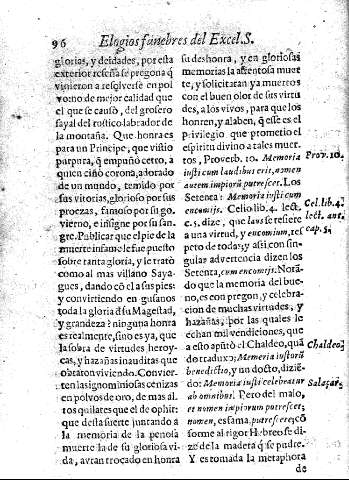 96 Elogios funebres del Excel. S.
glorias, y deidades, por esta
exterior reseña se pregona q̃
vinieron a resolverse en pol
vo no de mejor calidad que
el que se causò, del grosero
sayal del rostico labrador de
la montaña. Que honra es
para un Principe, que vistio
purpura, q̃ empuñò cetro, a
quien ciñò corona, adorado
de un mundo, temido por
sus vitorias, glorioso por sus
proezas, famoso por su go-
vierno, e insigne por su san-
gre. Publicar que el pie de la
muerte infame le fue puesto
sobre tanta gloria, y le tratò
como al mas villano Saya-
gues, dando cõ el a sus pies:
y convirtiendo en gusanos
toda la gloria d̃ su Magestad,
y grandeza? ninguna honra
es realmente, sino es ya, que
la sobra de virtudes heroy-
cas, y hazañas inauditas que
obraron viviendo. Convier-
ten las ignominiosas cenizas
en polvos de oro, de mas al-
tos quilates que el de ophir:
que desta suerte juntando a
la memoria de la penosa
muerte la de su gloriosa vi-
da, avran trocado en honra
su deshonra, y en gloriosas
memorias la afrentosa muer
te, y solicitaràn ya muertos
con el buen olor de sus virtu
des, a los vivos, para que los
honren, y alaben, q̃ esse es el
privilegio que prometio el
espiritu divino a tales muer-
tos, Proverb. 10. Memoria
iusti cum laudibus erit, nomen
autem impiorũ putrescet. Los
Setenta: Memoria iusti cum
encomijs. Celio lib. 4. lect.
c. 5. dize, que laus se refiere
a una virtud, y encomium, res
peto de todas; y assi, con sin-
gular advertencia dizen los
Setenta, cum encomijs. Notã-
do que la memoria del bue-
no, es con pregon, y celebra-
cion de muchas virtudes, y
hazañas, por las quales le
echan mil vendiciones, que
a esto apùtò el Chaldeo, quã
do traduxo; Memoria iustorũ
benedictio, y un docto, dizié-
do: Memoria iusti celebratur
ab omnibus. Pero del malo,
et nomen impiorum putrescet;
nomen, es fama, putrescet; cõ
forme al rigor Hebreo se di-
ze de la madera q̃ se pudre.
Y es tomada la metaphora
de
Prov. 10.
Cel. lib. 4.
lect. ant.
cap. 5.
Chaldeo.
Salazar.